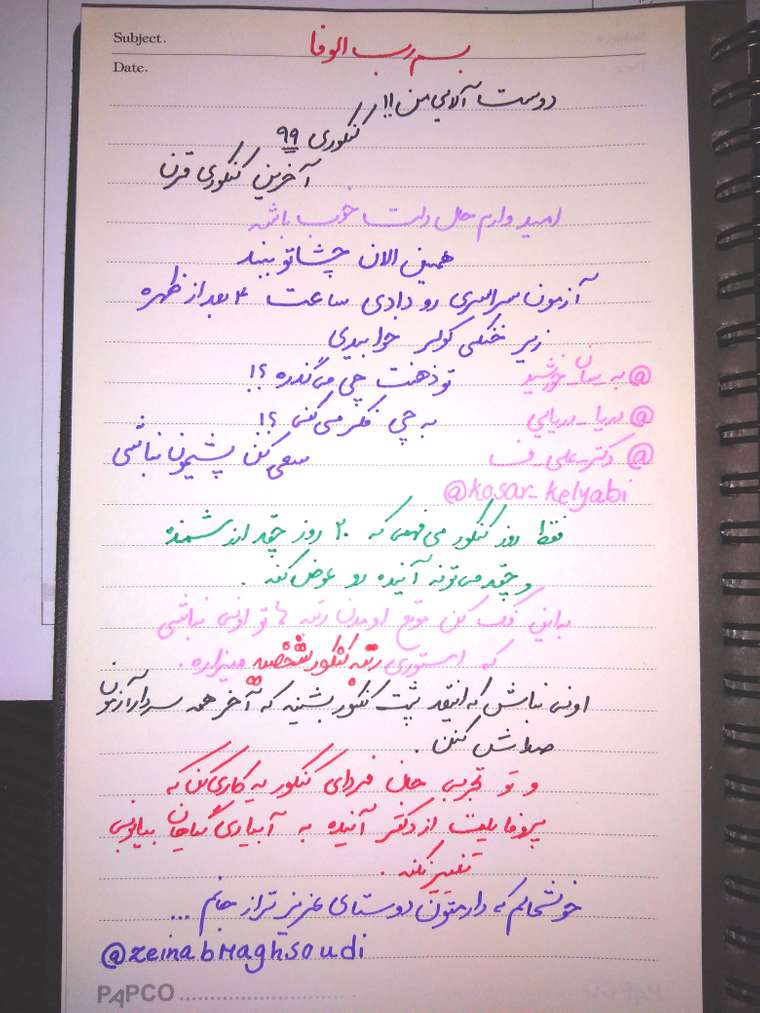 Subject.
بسم رب الوفا
Date.
دوست آلای من !!
کنکوری ۹۹
آخرین کنکوری قرن
امیدوارم حال دلت خوب باشه
همین الان چشاتو ببند
آزمون سراسری رو دادی ساعت ۴ بعد از ظهره
زیر خنکی کولر خوابیدی
تو ذهنت چی میگذره ؟!
@به_سان_خورشید
به چی فکر می کنی ؟!
@دریا_دریایی
سعی کن پشیمون نباشی
@دکتر_علی_فسا
@kosar_kelyabi
فقط روز کنکور می فهمی که ۲۰ روز چقد ارزشمنده
و چقد می تونه آینده رو عوض کنه .
به این فک کن موقع اومدن رتبه ها تو اونی نباشی
که استوری رتبه کنکور شخصیه میزاره .
اونی نباش که انقد پشت کنکور بشینه که آخر همه سردار آزمون
صداش کنن .
و تو تجربی جان فردای کنکور یه کاری کن که
پروفایلت از دکتر آینده به آبیاری گیاهان بیابونی
تغییر نکنه .
خوشحالم که دارمتون دوستای عزیز تر از جانم ...
@zeinabMaghsoudi
PAPCO